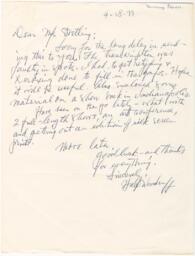 4-28-73
Dear Mr. Dolling:
Sorry for the long delay in send-
ing this to you. The transcription was
faulty in spots. I had to get
done to fill in the gaps. Hope
it will be useful. Also enclosed some
material on a show back in Indianapolis.
Have been on the go late - what with
2 full-length shows, an art conference,
and getting out an edition of silk screen
prints.
More later,
Good luck - and thanks
for everything.
Sincerely,
Hale Woodruff